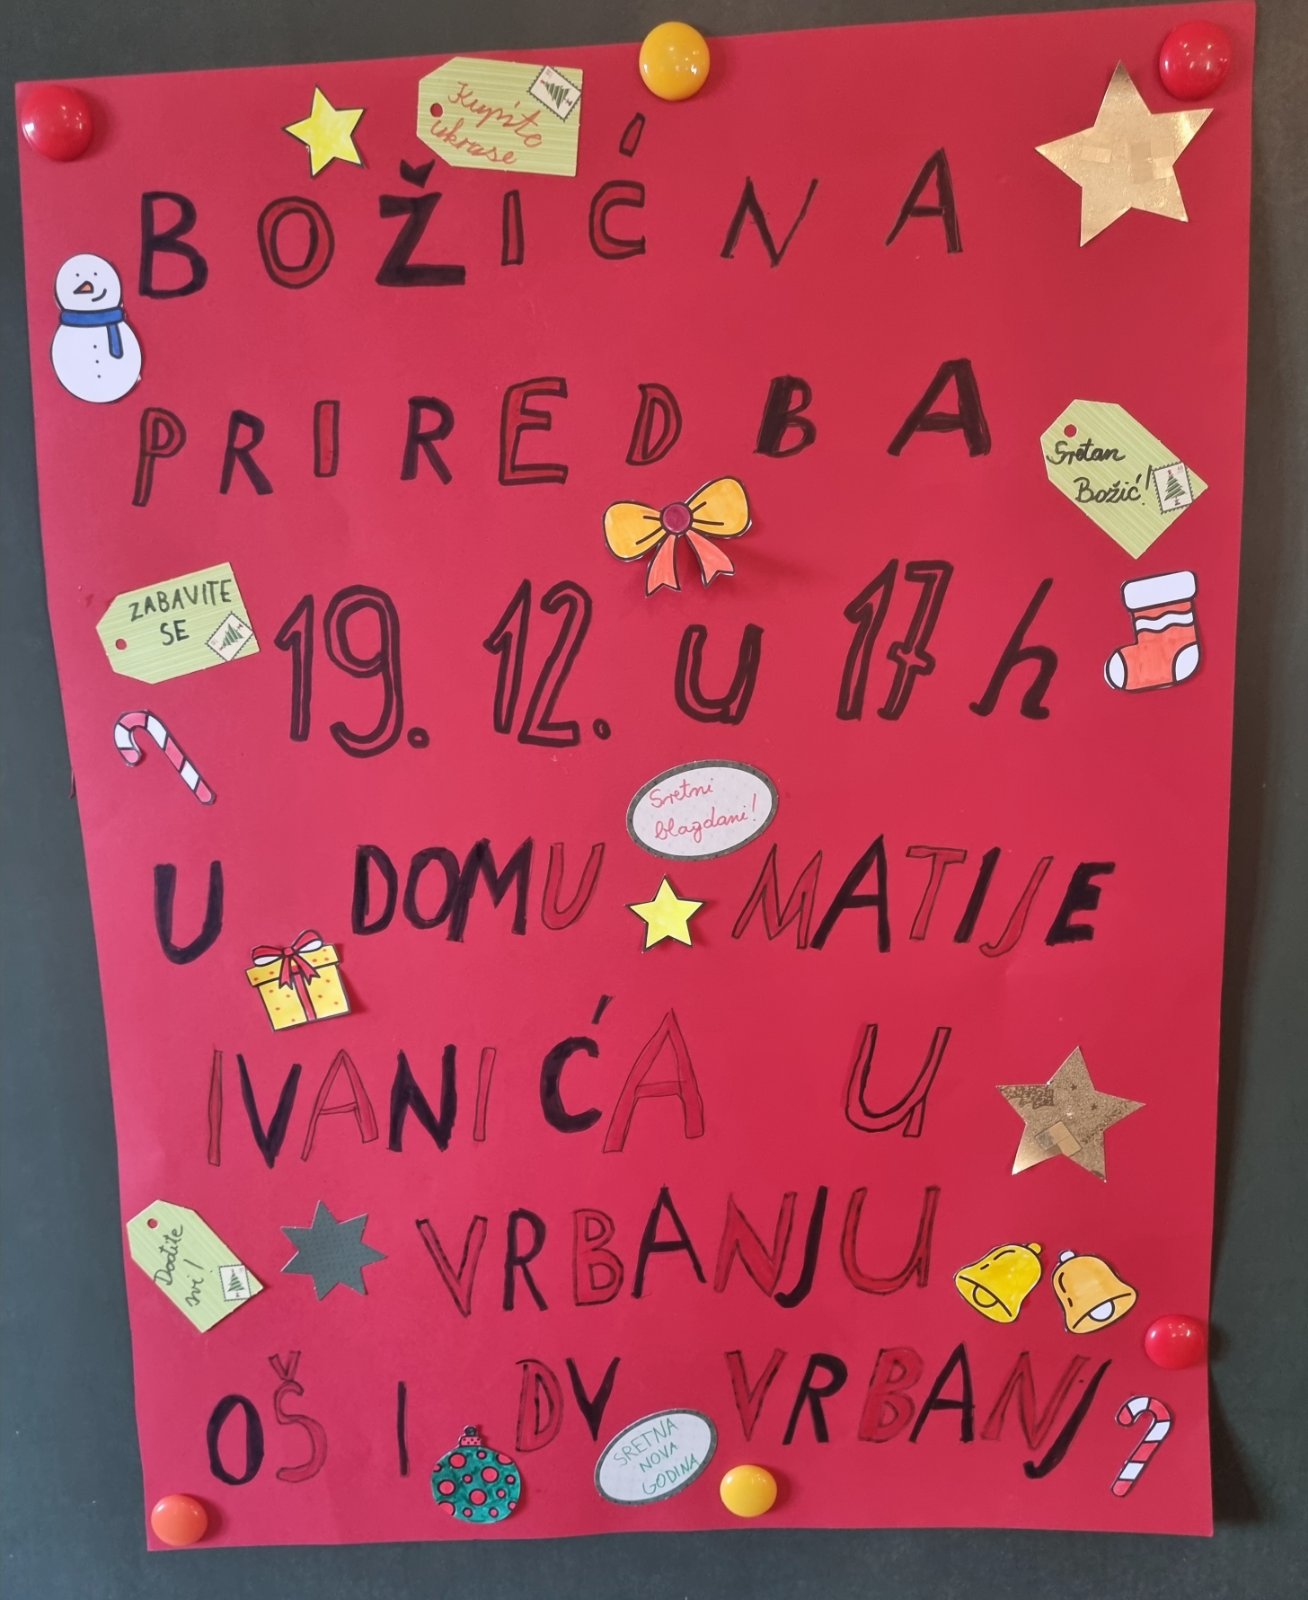 Kupite
ukrase
BOŽIĆNA
PRIREDBA
Sretan
Božić!
ZABAVITE
SE
19. 12. u 17 h
Sretni
blagdani!
U DOMU MATIJE
IVANIĆA U
VRBANJU
Dođite
svi!
OŠ I DV VRBANJ
SRETNA
NOVA
GODINA